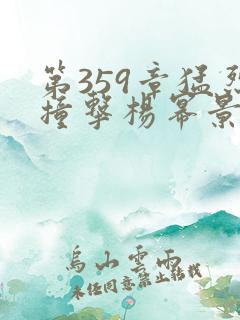 第359章猛烈
撞擊楊幂景
烏山雲雨
未经同意禁止转载